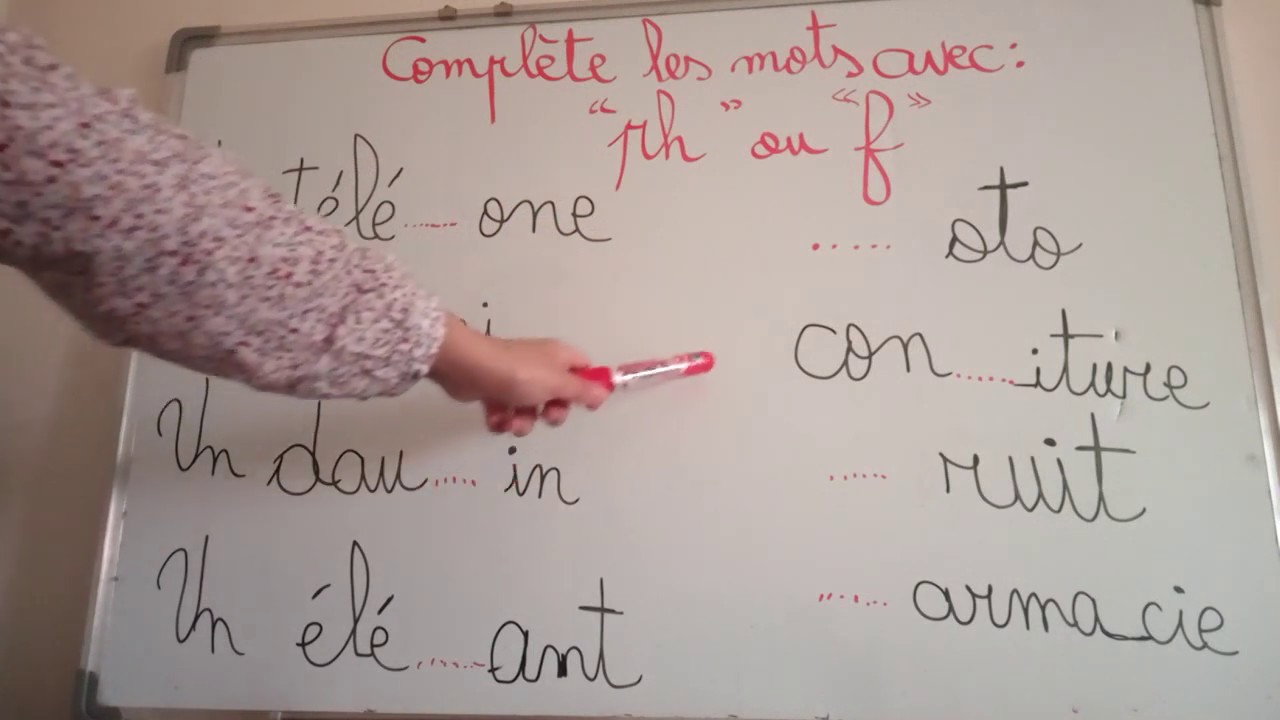 Complète les mots avec:
"ph" ou "f"
télé..... one
..... oto
con.....iture
Un dau..... in
..... ruit
Un élé.....ant
..... armacie